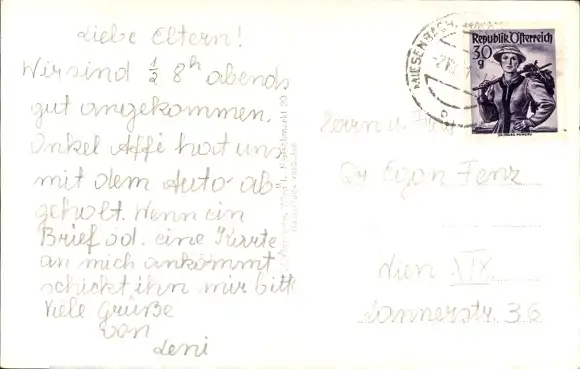 Liebe Eltern!
Wir sind ½ 8ʰ abends
gut angekommen.
Onkel Affi hat uns
mit dem Auto ab-
geholt. Wenn ein
Brief od. eine Karte
an mich ankommt
schickt ihn mir bitte
Viele Grüße
von
Leni
MIESENBACH
Republik Österreich
30
g
Herrn u. Frau
Dr Egon Fenz
Wien XIX.
Dannerstr. 36